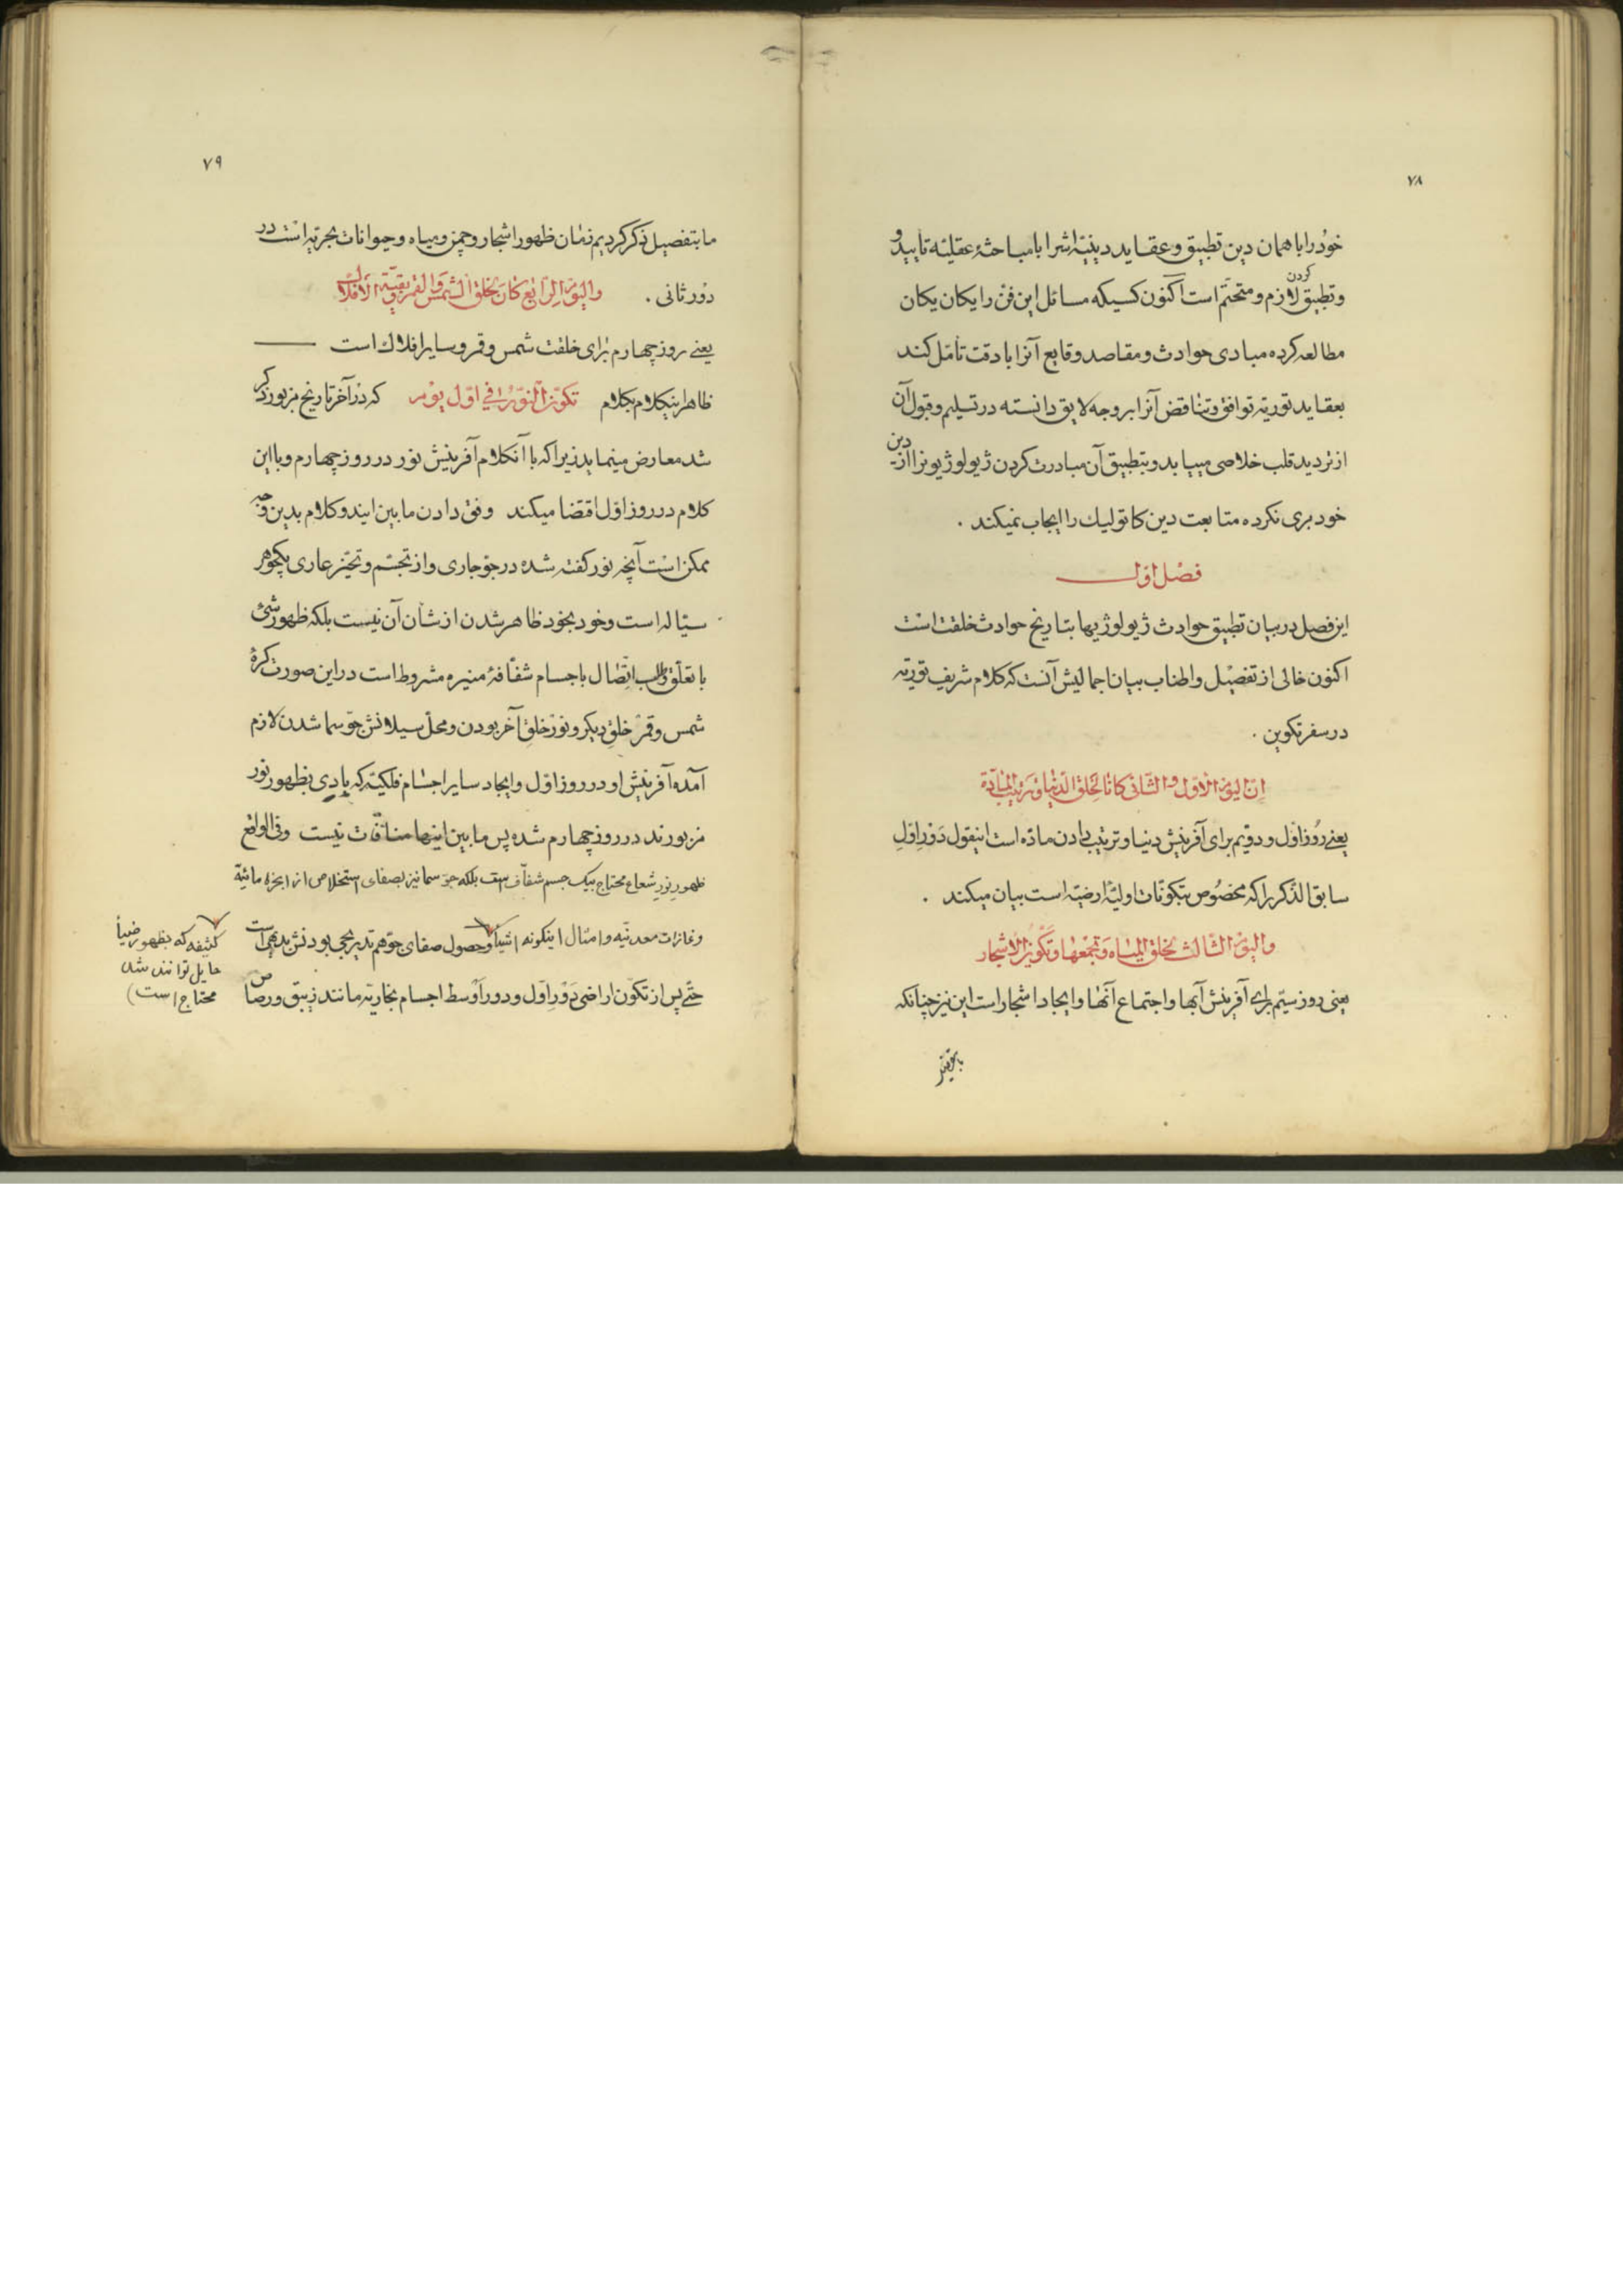 ۷۸
خود را با همان دین تطبیق و عقاید دینیه‌اش را با مباحثهٔ عقلیّه تأیید و
و تطبیق کردن لازم و متحتّم است آکنون کسیکه مسائل این فنّ را یکان یکان
مطالعه کرده مبادی حوادث و مقاصد وقایع آنرا با دقت تأمّل کند
بعقاید توریة توافق و تناقض آنرا بر وجه لایق دانسته در تسلیم و قبول آن
از تردید قلب خلاصی مییابد و بتطبیق آن مبادرت کردن ژیولوژیونرا از دین
خود بری نکرده متابعت دین کاتولیك را ایجاب نمیکند .
فصل اوّل
این فصل در بیان تطبیق حوادث ژیولوژیها بتاریخ حوادث خلقت است
اکنون خالی از تفصیل و اطناب بیان اجمالیش آنست که کلام شریف توریة
در سفر تکوین .
انّ الیوم الاوّل والثّانی کانا لخلق الدّنیا و ترتیب المادّة
یعنی روز اوّل و دویّم برای آفرینش دنیا و ترتیب دادن مادّه است اینقول دَوْرِ اوّلِ
سابق الذّکر را که مخصوص بتکوّنات اولیّهٔ ارضیّه است بیان میکند .
والیوم الثّالث لخلق المیاه وَ تجمّعها و تکوین الاشجار
یعنی روز سیّم برای آفرینش آبها و اجتماع آنها و ایجاد اشجار است این نیز چنانکه
۷۹
ما بتفصیل ذکر کردیم زمان ظهور اشجار و چمن و میاه و حیوانات بحریّه است در
دَوْر ثانی . والیوم الرّابع کان لخلق الشّمس وَالقمر و بقیّة الافلاك
یعنی روز چهارم برای خلقت شمس و قمر و سایر افلاك است
ظاهر اینکلام بکلام تکوّن النّور فی اوّل یوم که در آخر تاریخ مزبور ذکر
شد معارض مینماید زیرا که با آنکلام آفرینش نور در روز چهارم و با این
کلام در روز اوّل اقتضا میکند وفق دادن ما بین ایندو کلام بدین وجه
ممکن است آنچه نور کفته شده در جوّ جاری و از تجسّم و تحیّز عاری یکجوهر
سیّاله است و خود بخود ظاهر شدن از شان آن نیست بلکه ظهور شئ
با تعلّق و اتّصال با جسام شفّافهٔ منیره مشروط است در این صورت کرهٔ
شمس و قمر خلق دیکر و نور خلق آخر بودن و محلّ سیلانش جوّ سما شدن لازم
آمده آفرینش او در روز اوّل و ایجاد سایر اجسام فلکیّه که بادی بظهور نور
مزبورند در روز چهارم شده پس ما بین اینها منافات نیست و فی الواقع
ظهورِ نورِ شعاع محتاج بیک جسم شفّاف است بلکه جوّ سما نیز بصفای استخلاص از ابخرهٔ مائیّه
و غازات معدنیّه و امثال اینکونه اشیا و حصول صفای جوّ هم تدریجی بودنش بدیهی است
کثیفه که بظهور ضیأ
حایل توانند شد
محتاج است)
حتّی پس از تکوّن اراضی دَوْرِ اوّل و دور اوسط اجسام بخاریّه مانند زیبق و رصاص